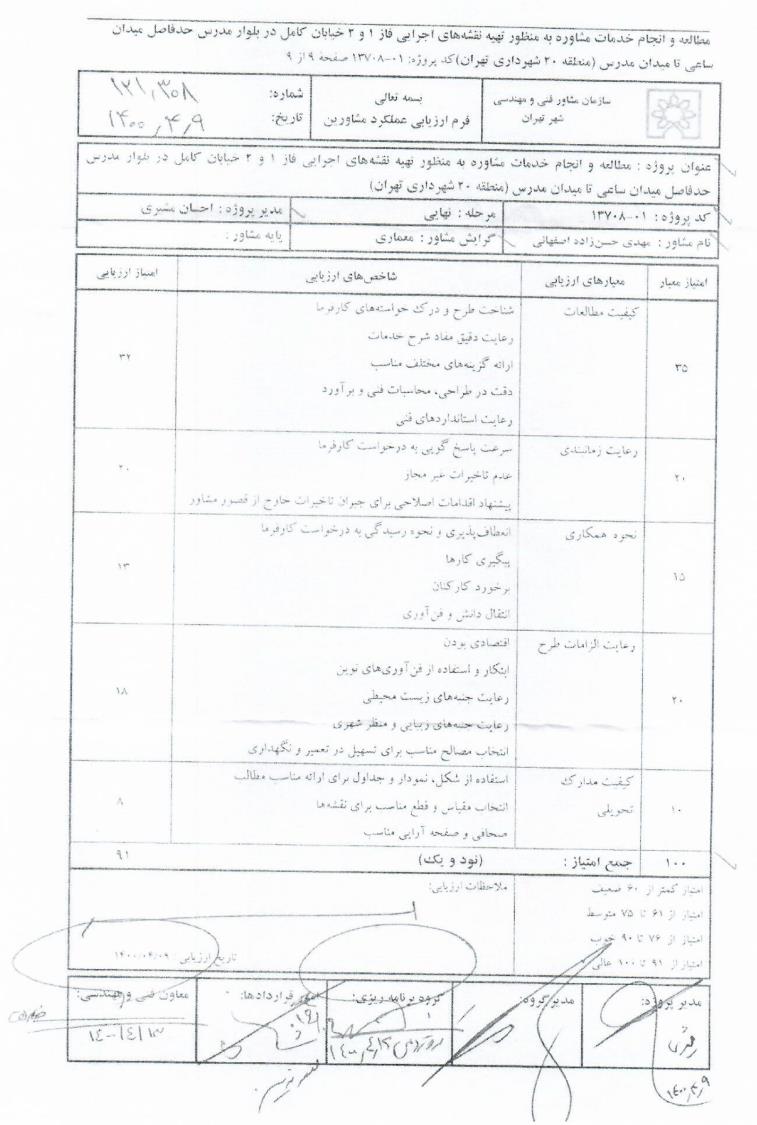 مطالعه و انجام خدمات مشاوره به منظور تهیه نقشه‌های اجرایی فاز ۱ و ۲ خیابان کامل در بلوار مدرس حدفاصل میدان
ساعی تا میدان مدرس (منطقه ۲۰ شهرداری تهران) کد پروژه: ۰۱-۱۳۷۰۸ صفحه ۹ از ۹
سازمان مشاور فنی و مهندسی
شهر تهران
بسمه تعالی
فرم ارزیابی عملکرد مشاورین
شماره: ۱۲۱,۳۰۸
تاریخ: ۱۴۰۰,۴,۹
عنوان پروژه : مطالعه و انجام خدمات مشاوره به منظور تهیه نقشه‌های اجرایی فاز ۱ و ۲ خیابان کامل در بلوار مدرس
حدفاصل میدان ساعی تا میدان مدرس (منطقه ۲۰ شهرداری تهران)
کد پروژه : ۰۱-۱۳۷۰۸ مرحله : نهایی مدیر پروژه : احسان مشیری
نام مشاور : مهدی حسن‌زاده اصفهانی گرایش مشاور : معماری پایه مشاور :
امتیاز معیار معیارهای ارزیابی شاخص‌های ارزیابی امتیاز ارزیابی
۳۵ کیفیت مطالعات شناخت طرح و درک خواسته‌های کارفرما ۳۲
رعایت دقیق مفاد شرح خدمات
ارائه گزینه‌های مختلف مناسب
دقت در طراحی، محاسبات فنی و برآورد
رعایت استانداردهای فنی
۲۰ رعایت زمانبندی سرعت پاسخ گویی به درخواست کارفرما ۲۰
عدم تاخیرات غیر مجاز
پیشنهاد اقدامات اصلاحی برای جبران تاخیرات خارج از قصور مشاور
۱۵ نحوه همکاری انعطاف‌پذیری و نحوه رسیدگی به درخواست کارفرما ۱۳
پیگیری کارها
برخورد کارکنان
انتقال دانش و فن‌آوری
۲۰ رعایت الزامات طرح اقتصادی بودن ۱۸
ابتکار و استفاده از فن‌آوری‌های نوین
رعایت جنبه‌های زیست محیطی
رعایت جنبه‌های زیبایی و منظر شهری
انتخاب مصالح مناسب برای تسهیل در تعمیر و نگهداری
۱۰ کیفیت مدارک استفاده از شکل، نمودار و جداول برای ارائه مناسب مطالب ۸
تحویلی انتخاب مقیاس و قطع مناسب برای نقشه‌ها
صحافی و صفحه آرایی مناسب
۱۰۰ جمع امتیاز : (نود و یک) ۹۱
امتیاز کمتر از ۶۰ ضعیف
امتیاز از ۶۱ تا ۷۵ متوسط
امتیاز از ۷۶ تا ۹۰ خوب
امتیاز از ۹۱ تا ۱۰۰ عالی
ملاحظات ارزیابی:
تاریخ ارزیابی: ۱۴۰۰/۰۴/۰۹
مدیر پروژه: مدیر گروه: گروه برنامه ریزی: امور قراردادها: معاون فنی و مهندسی:
۱۴۰۰/۴/۱۳
۱۴۰۰,۴,۹